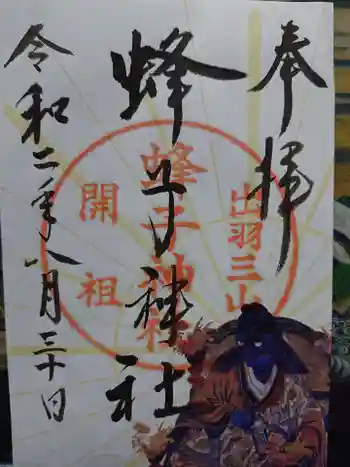 奉拝
蜂子神社
令和二年八月三十日
出羽三山
蜂子神社
開祖